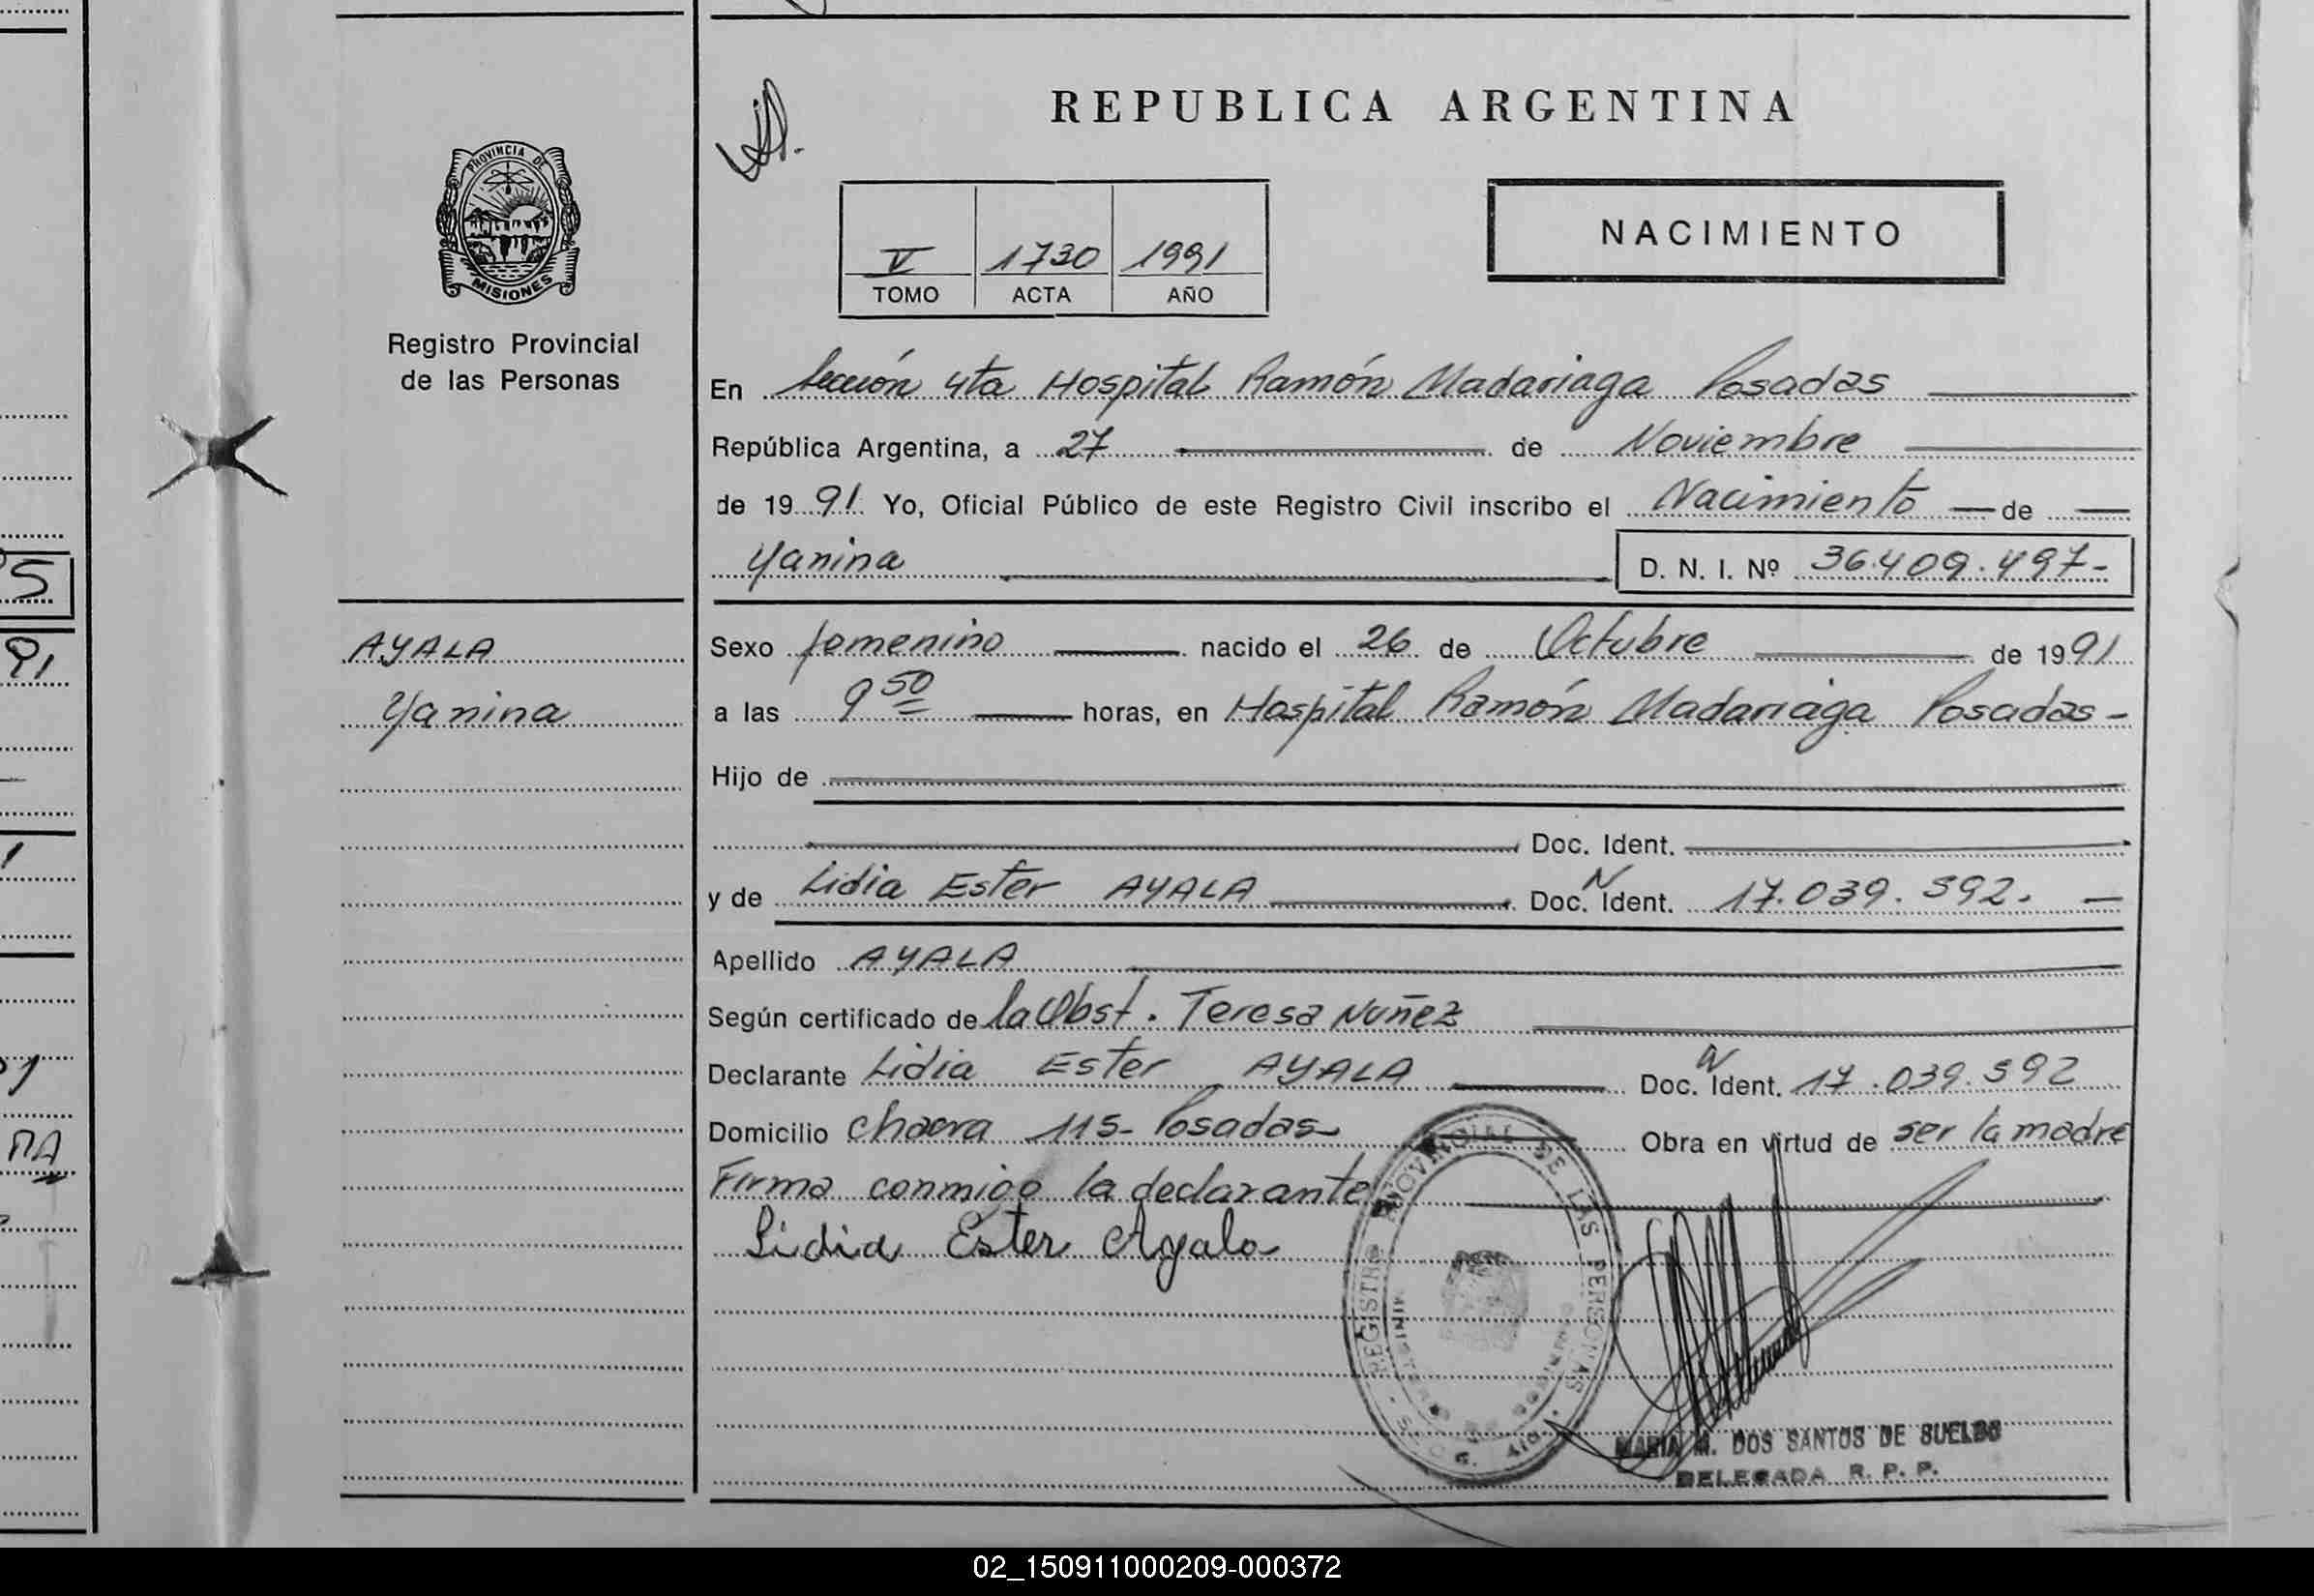 REPUBLICA ARGENTINA
PROVINCIA DE
MISIONES
Registro Provincial
de las Personas
V 1730 1991
TOMO ACTA AÑO
NACIMIENTO
En Sección 4ta Hospital Ramón Madariaga Posadas
República Argentina, a 27 de Noviembre
de 1991 Yo, Oficial Público de este Registro Civil inscribo el Nacimiento de
Yanina D. N. I. Nº 36.409.497-
AYALA
Yanina
Sexo femenino nacido el 26 de Octubre de 1991
a las 9 50 horas, en Hospital Ramón Madariaga Posadas-
Hijo de
Doc. Ident.
y de Lidia Ester AYALA Doc. N Ident. 17.039.592.
Apellido AYALA
Según certificado de la Obst. Teresa Nuñez
Declarante Lidia Ester AYALA Doc. N Ident. 17.039.592
Domicilio Chacra 115- Posadas Obra en virtud de ser la madre
Firma conmigo la declarante
Lidia Ester Ayala
REGISTRO PROVINCIAL DE LAS PERSONAS
MARIA M. DOS SANTOS DE SUELDO
DELEGADA R. P. P.
5
91
02_150911000209-000372